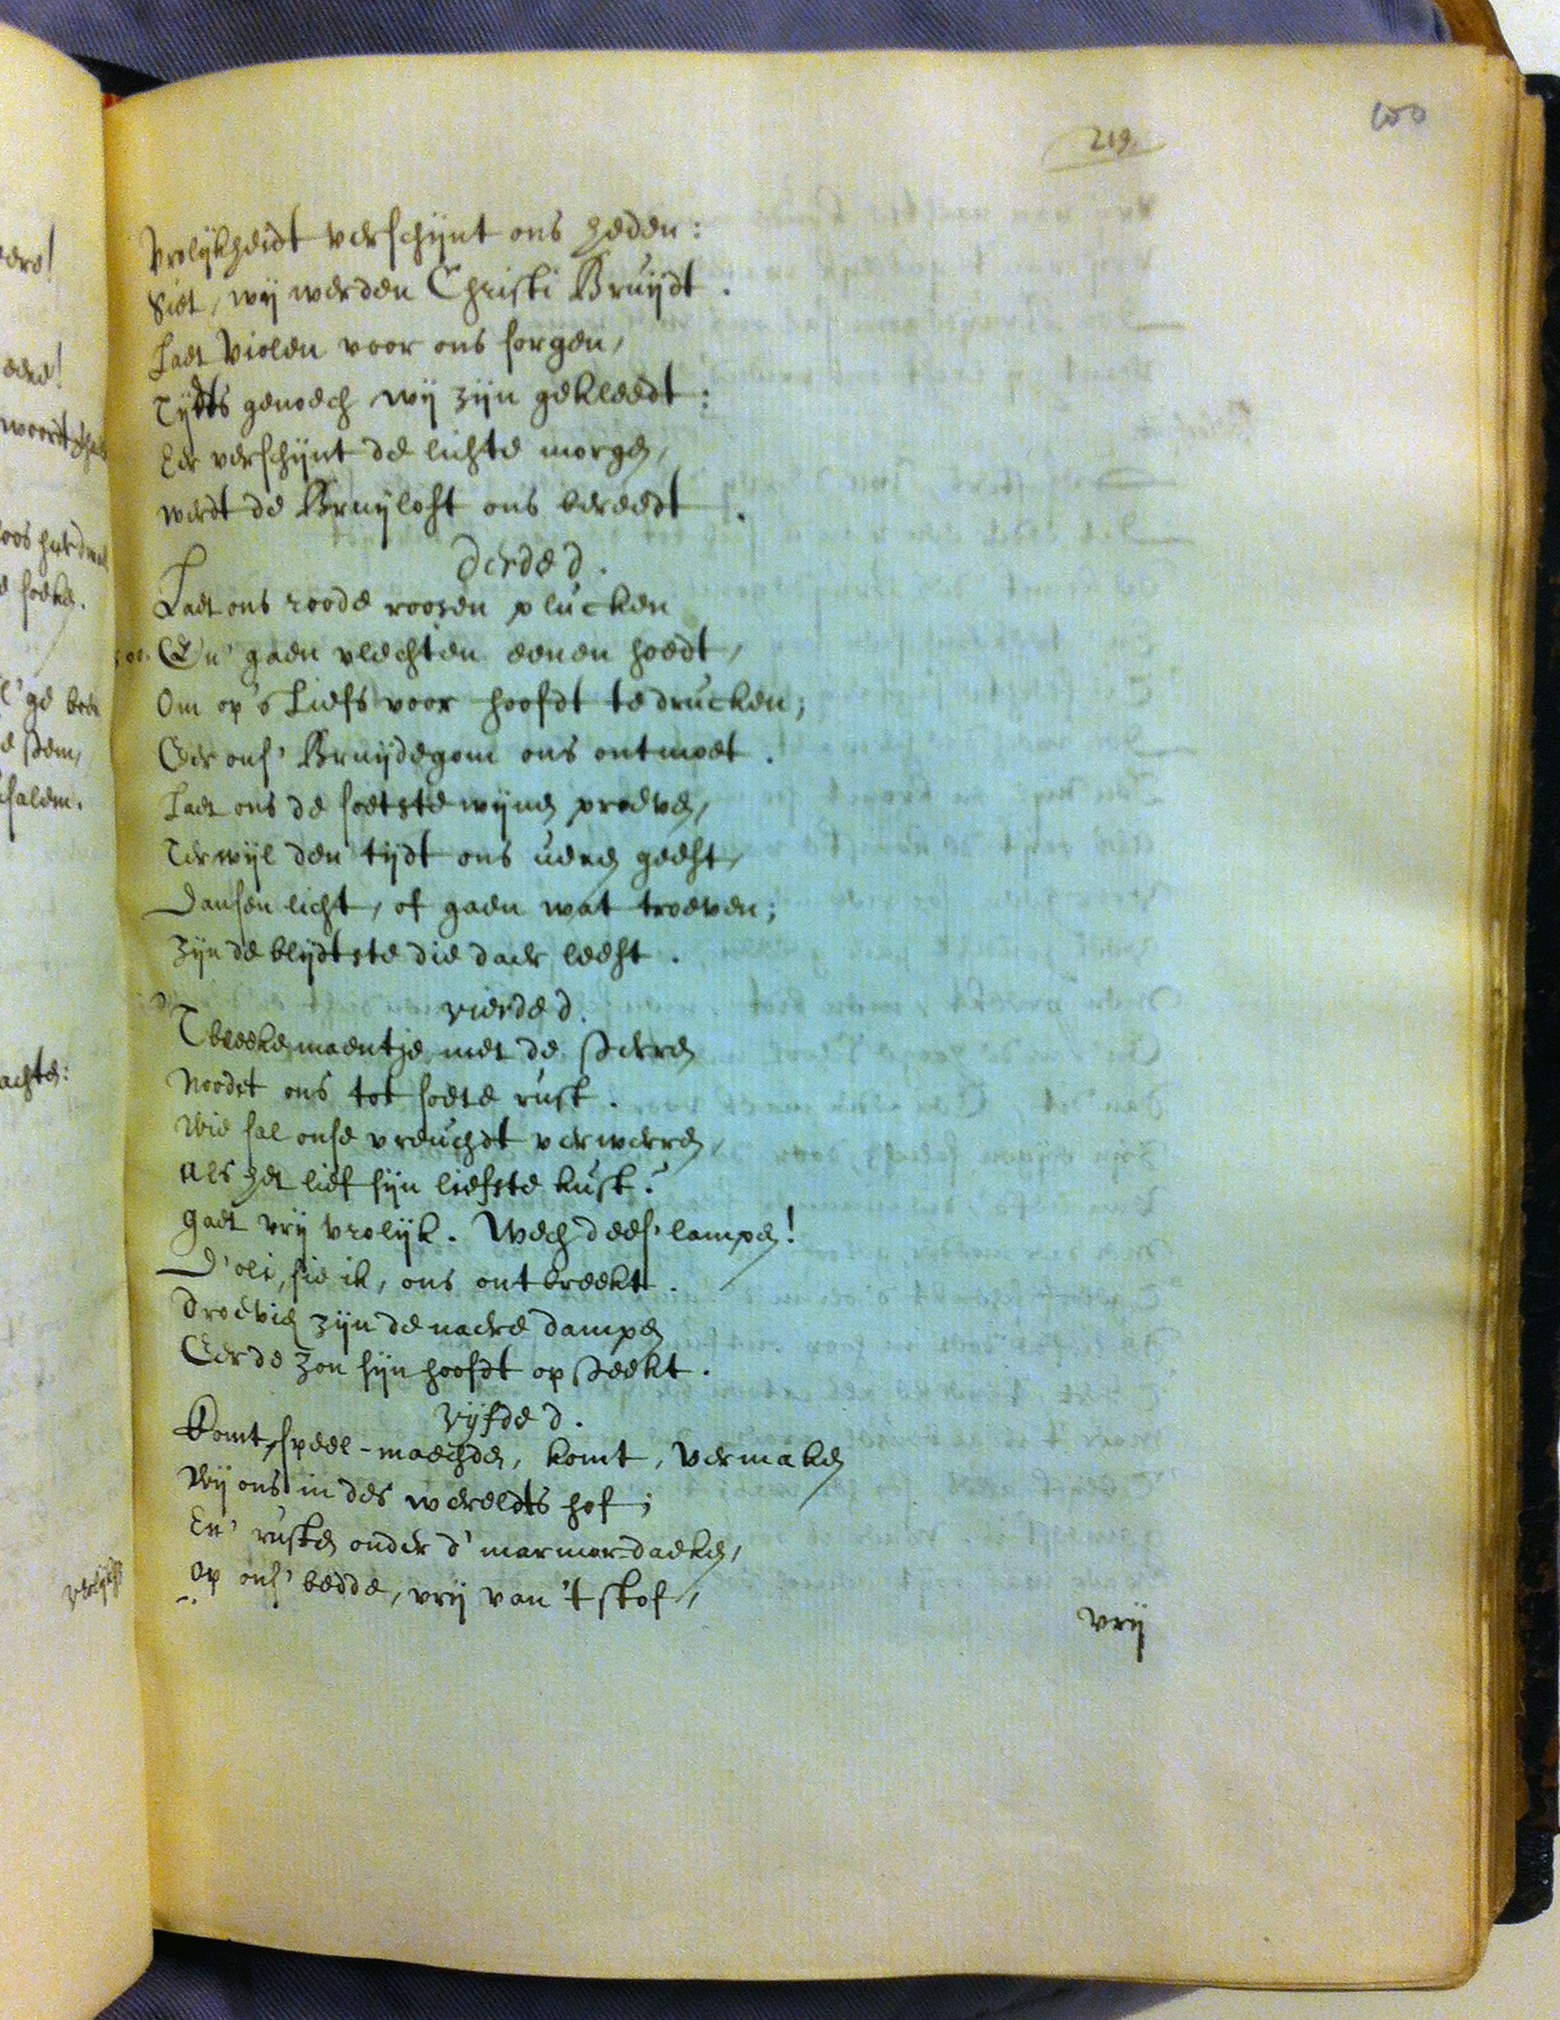 100
219.
Vrolijkheidt verschijnt ons heden:
Siet, wij werden Christi Bruijdt.
Laet Violen voor ons sorgen,
Tijdts genoech wij zijn gekleedt:
Eer verschijnt de lichte morgen,
werdt de Bruijloft ons bereedt.
derde d.
Laet ons roode roosen plucken
En' gaen vlechten eenen hoedt,
Om op 's Liefs voor hoofdt te drucken;
Eer ons' Bruijdegom ons ontmoet.
Laet ons de soetste wijnen proeven,
Terwijl den tijdt ons uren geeft,
Dansen licht, of gaen wat troeven;
Zijn de blijdtste die daer leeft.
vierde d.
Tbleeke maentje met de sterren
Noodet ons tot soete rust.
Wie sal onse vreuchdt verwerren
Als het lief sijn liefste kust?
gaet vrij vrolijk. Wech dees' lampen!
D'oli, sie ik, ons ontbreekt.
Droevich zijn de nacre dampen
Eer de Zon sijn hoofdt op steekt.
vijfde d.
Komt, speel-maechden, komt, Vermaken
Wij ons in des wereldts hof;
En' rusten onder d'marmer-daeken,
op ons' bedde, vrij van 't stof,
vrij